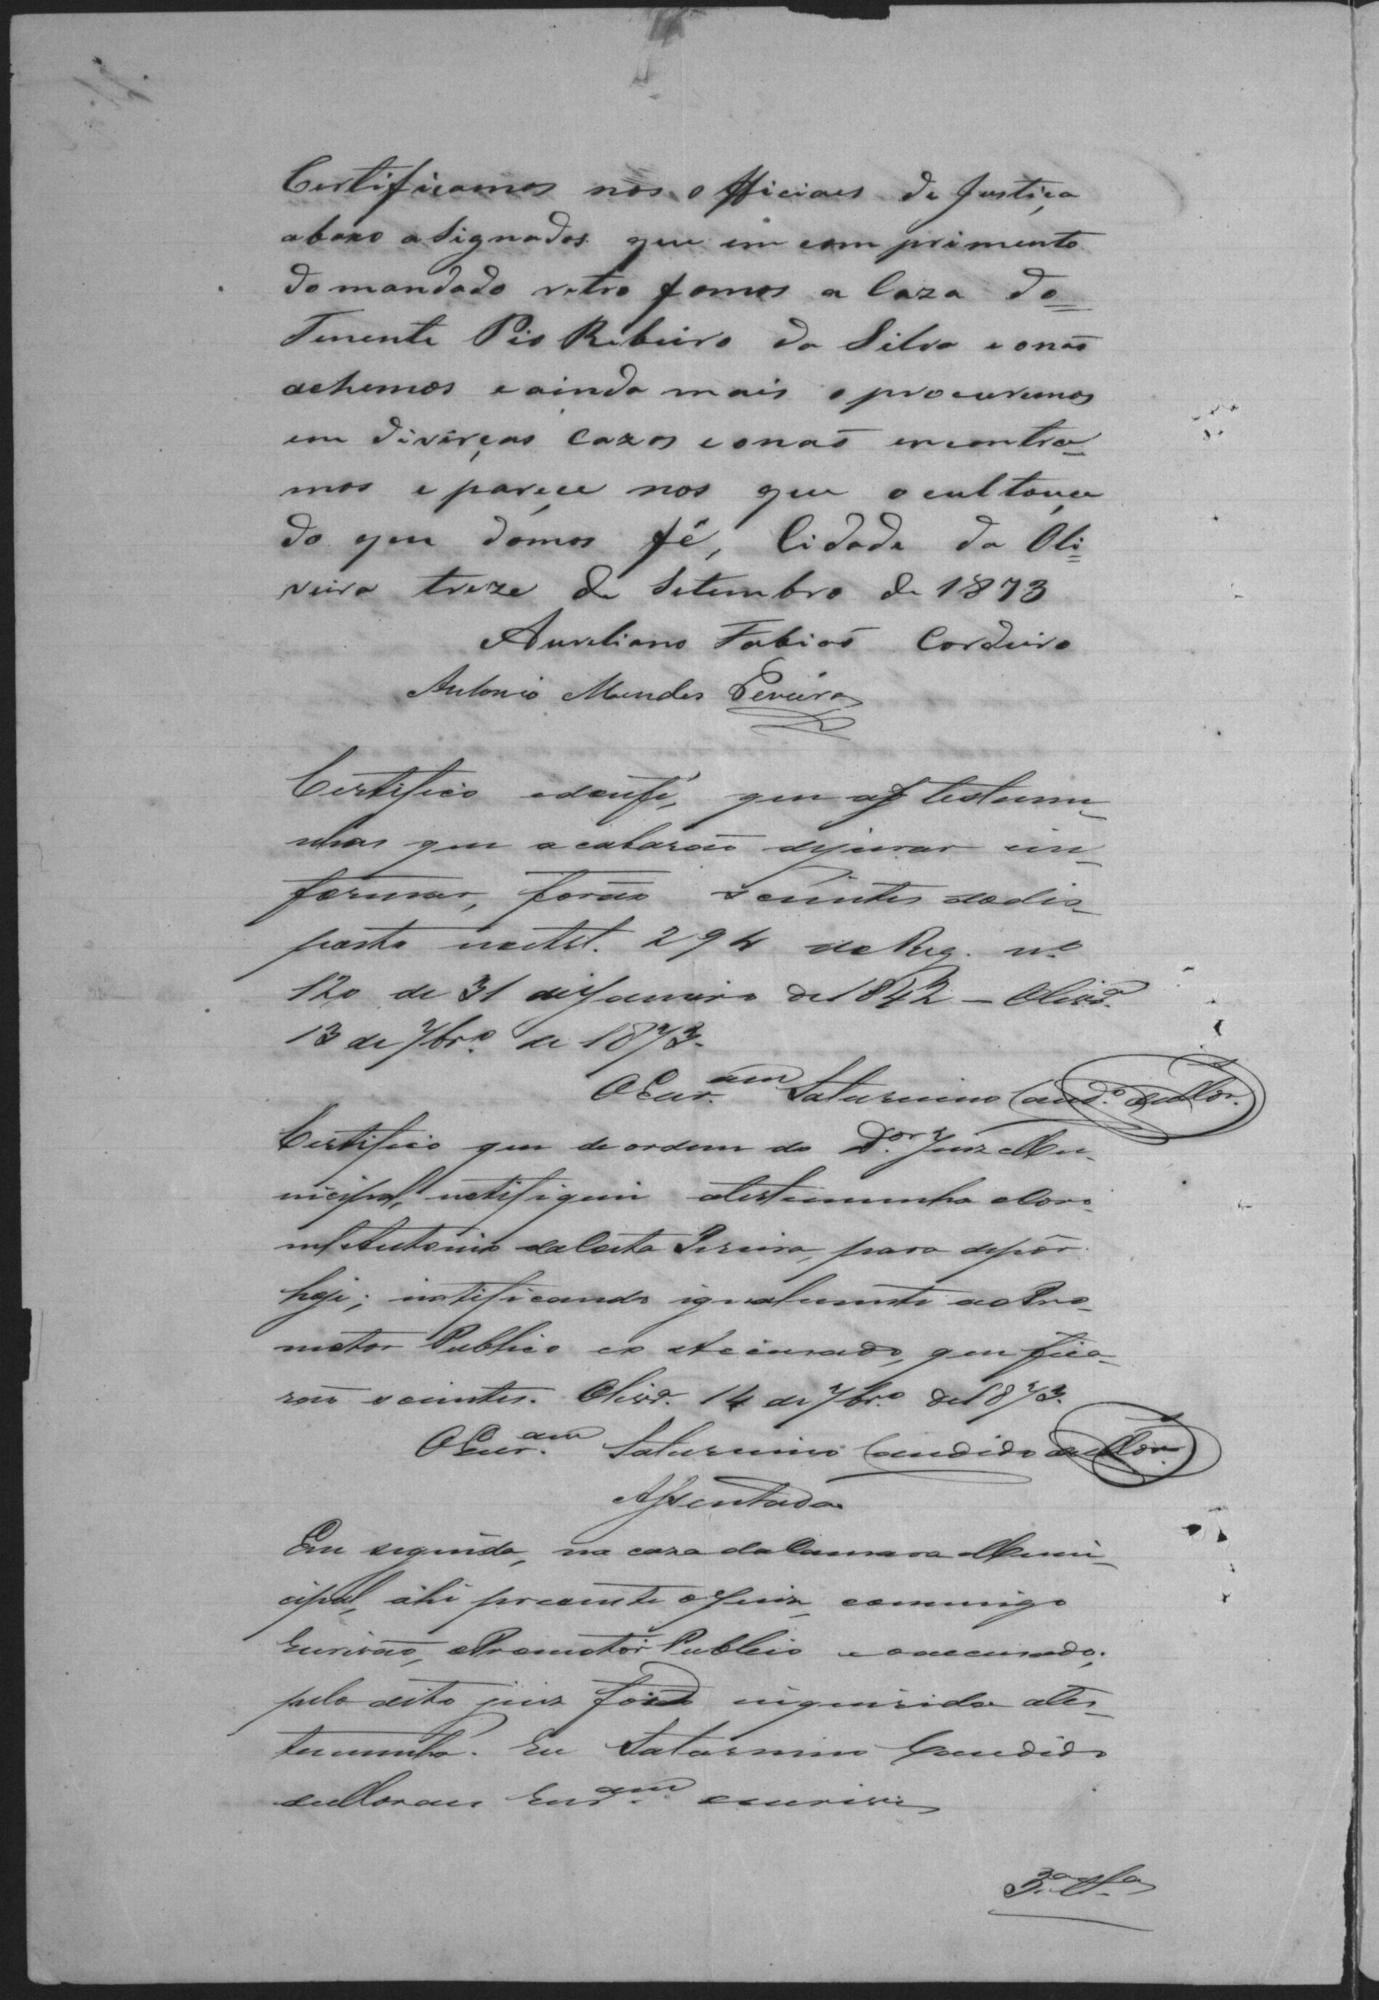 Certificamos nos officiaes de Justiça
abaxo asignados que em comprimento
do mandado retro fomos a Caza do=
Tenente Pio Ribeiro da Silva e onaõ
achemos e ainda mais o procuremos
em diverças cazas e onaõ encontra=
mos e pareçe nos que ocultouçe
do que damos fé, Cidade da Oli=
veira treze de Setembro de 1873
Aureliano Fabiaõ Cordeiro
Antonio Mendes Pereira
Certifico e dou fé, que as testemu-
nhas que acabaraõ de jurar in-
formar, foraõ scientes do dis-
posto no Art. 294 do Reg. nº
120 de 31 de Janeiro de 1842 – Olivrª.
13 de 7brº. de 1873.
O Escr.am Saturnino Candº. de Mor.
Certifico que de ordem do Dor. Juiz Mu-
nicipal, notifiquei atestemunha Coro-
nel Antonio da Costa Pereira, para depôr
hoje; notificando igualmente ao Pro-
motor Publico e o Accusado, que fica-
raõ scientes. Olivrª. 14 de 7brº. de 1873.
O Escr.am Saturnino Candido de Mor.
Assentada
Em seguida, na caza da Camara Muni-
cipal, ahi presente o Juiz, commigo
Escrivaõ, o Promotor Publico e o accusado;
pelo dito juiz foi inquirida ates-
temunha. Eu Saturnino Candido
de Moraes Escr.am escrivi
3.ª Tª.